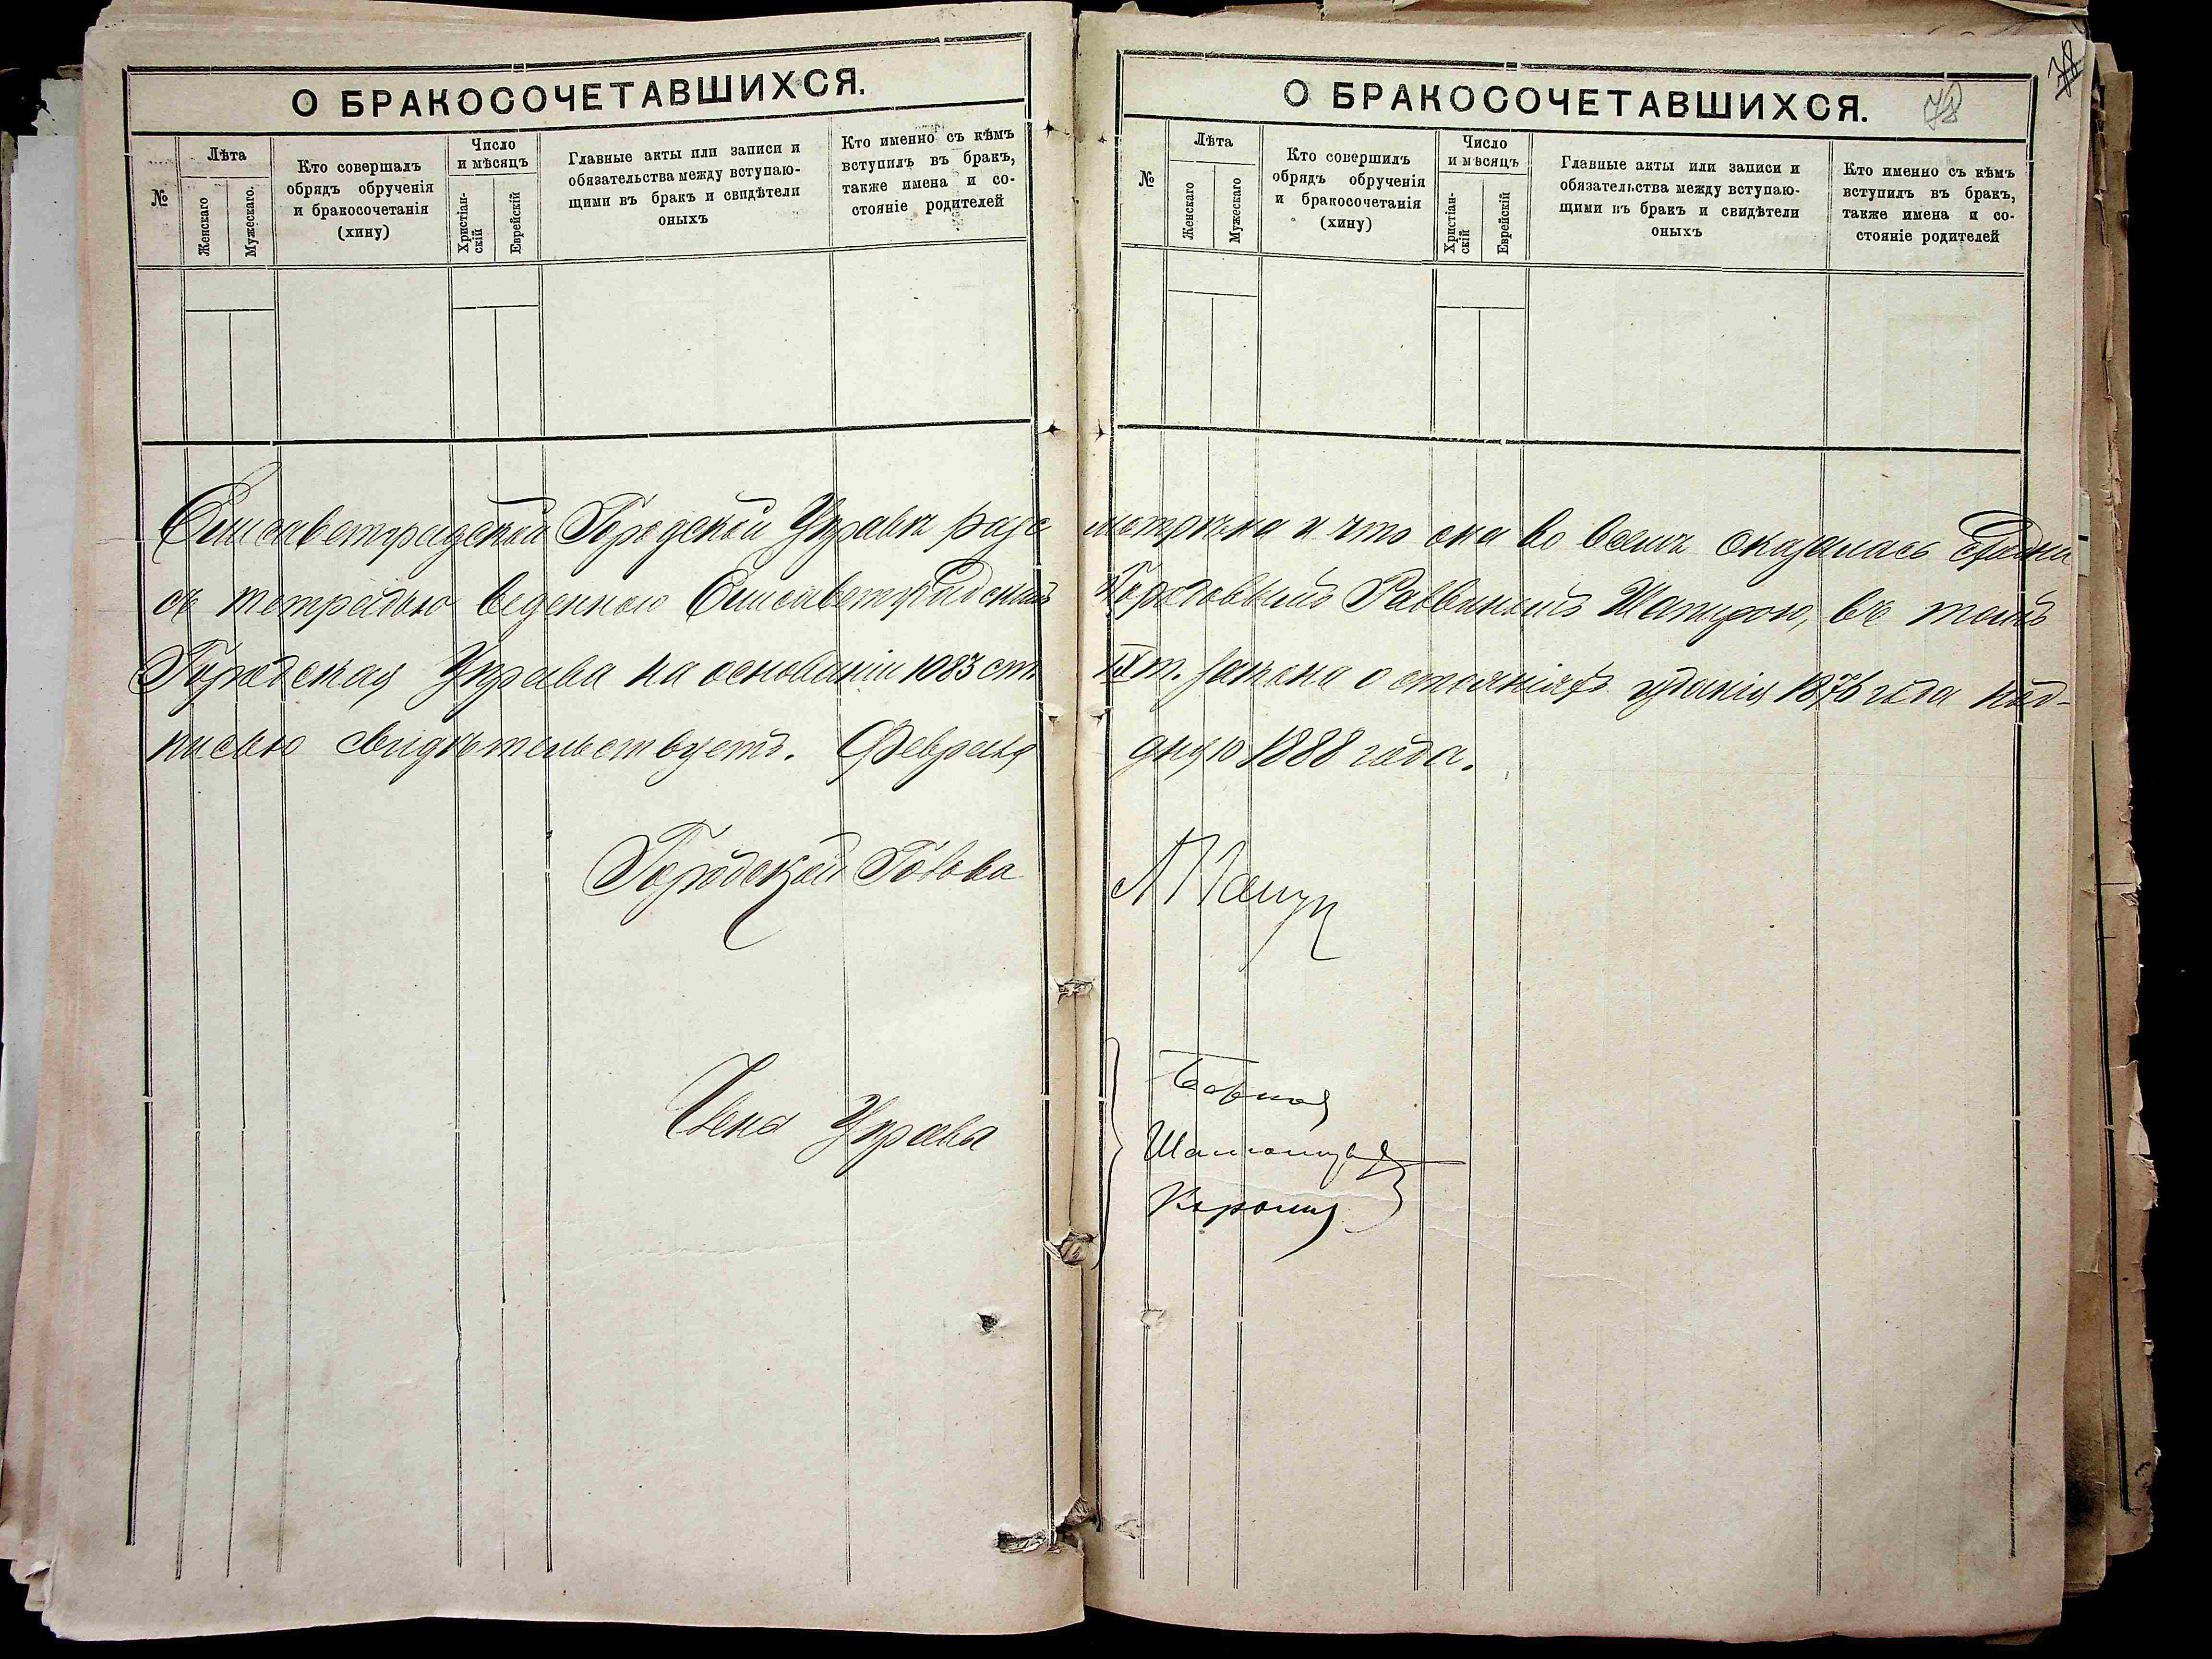 О БРАКОСОЧЕТАВШИХСЯ.
№
Лѣта
Женскаго
Мужескаго.
Кто совершалъ
обрядъ обрученія
и бракосочетанія
(хину)
Число
и мѣсяцъ
Христіан-
скій
Еврейскій
Главные акты или записи и
обязательства между вступаю-
щими въ бракъ и свидѣтели
оныхъ
Кто именно съ кѣмъ
вступилъ въ бракъ,
также имена и со-
стояніе родителей
О БРАКОСОЧЕТАВШИХСЯ.
№
Лѣта
Женскаго
Мужескаго
Кто совершилъ
обрядъ обрученія
и бракосочетанія
(хину)
Число
и мѣсяцъ
Христіан-
скій
Еврейскій
Главные акты или записи и
обязательства между вступаю-
щими въ бракъ и свидѣтели
оныхъ
Кто именно съ кѣмъ
вступилъ въ бракъ,
также имена и со-
стояніе родителей
Елисаветградской Городской Управѣ разс мотрѣна и что она во всемъ оказалась сходна
съ тетрадью веденною Елисаветградскимъ Городовымъ Раввиномъ Шапирою, въ томъ
Городская Управа на основаніи 1083 ст. IX т. закона о стояніяхъ изданія 1876 года над-
писью свидѣтельствуетъ. Февраля дня 10 1888 года.
Городской Голова
Члены Управы